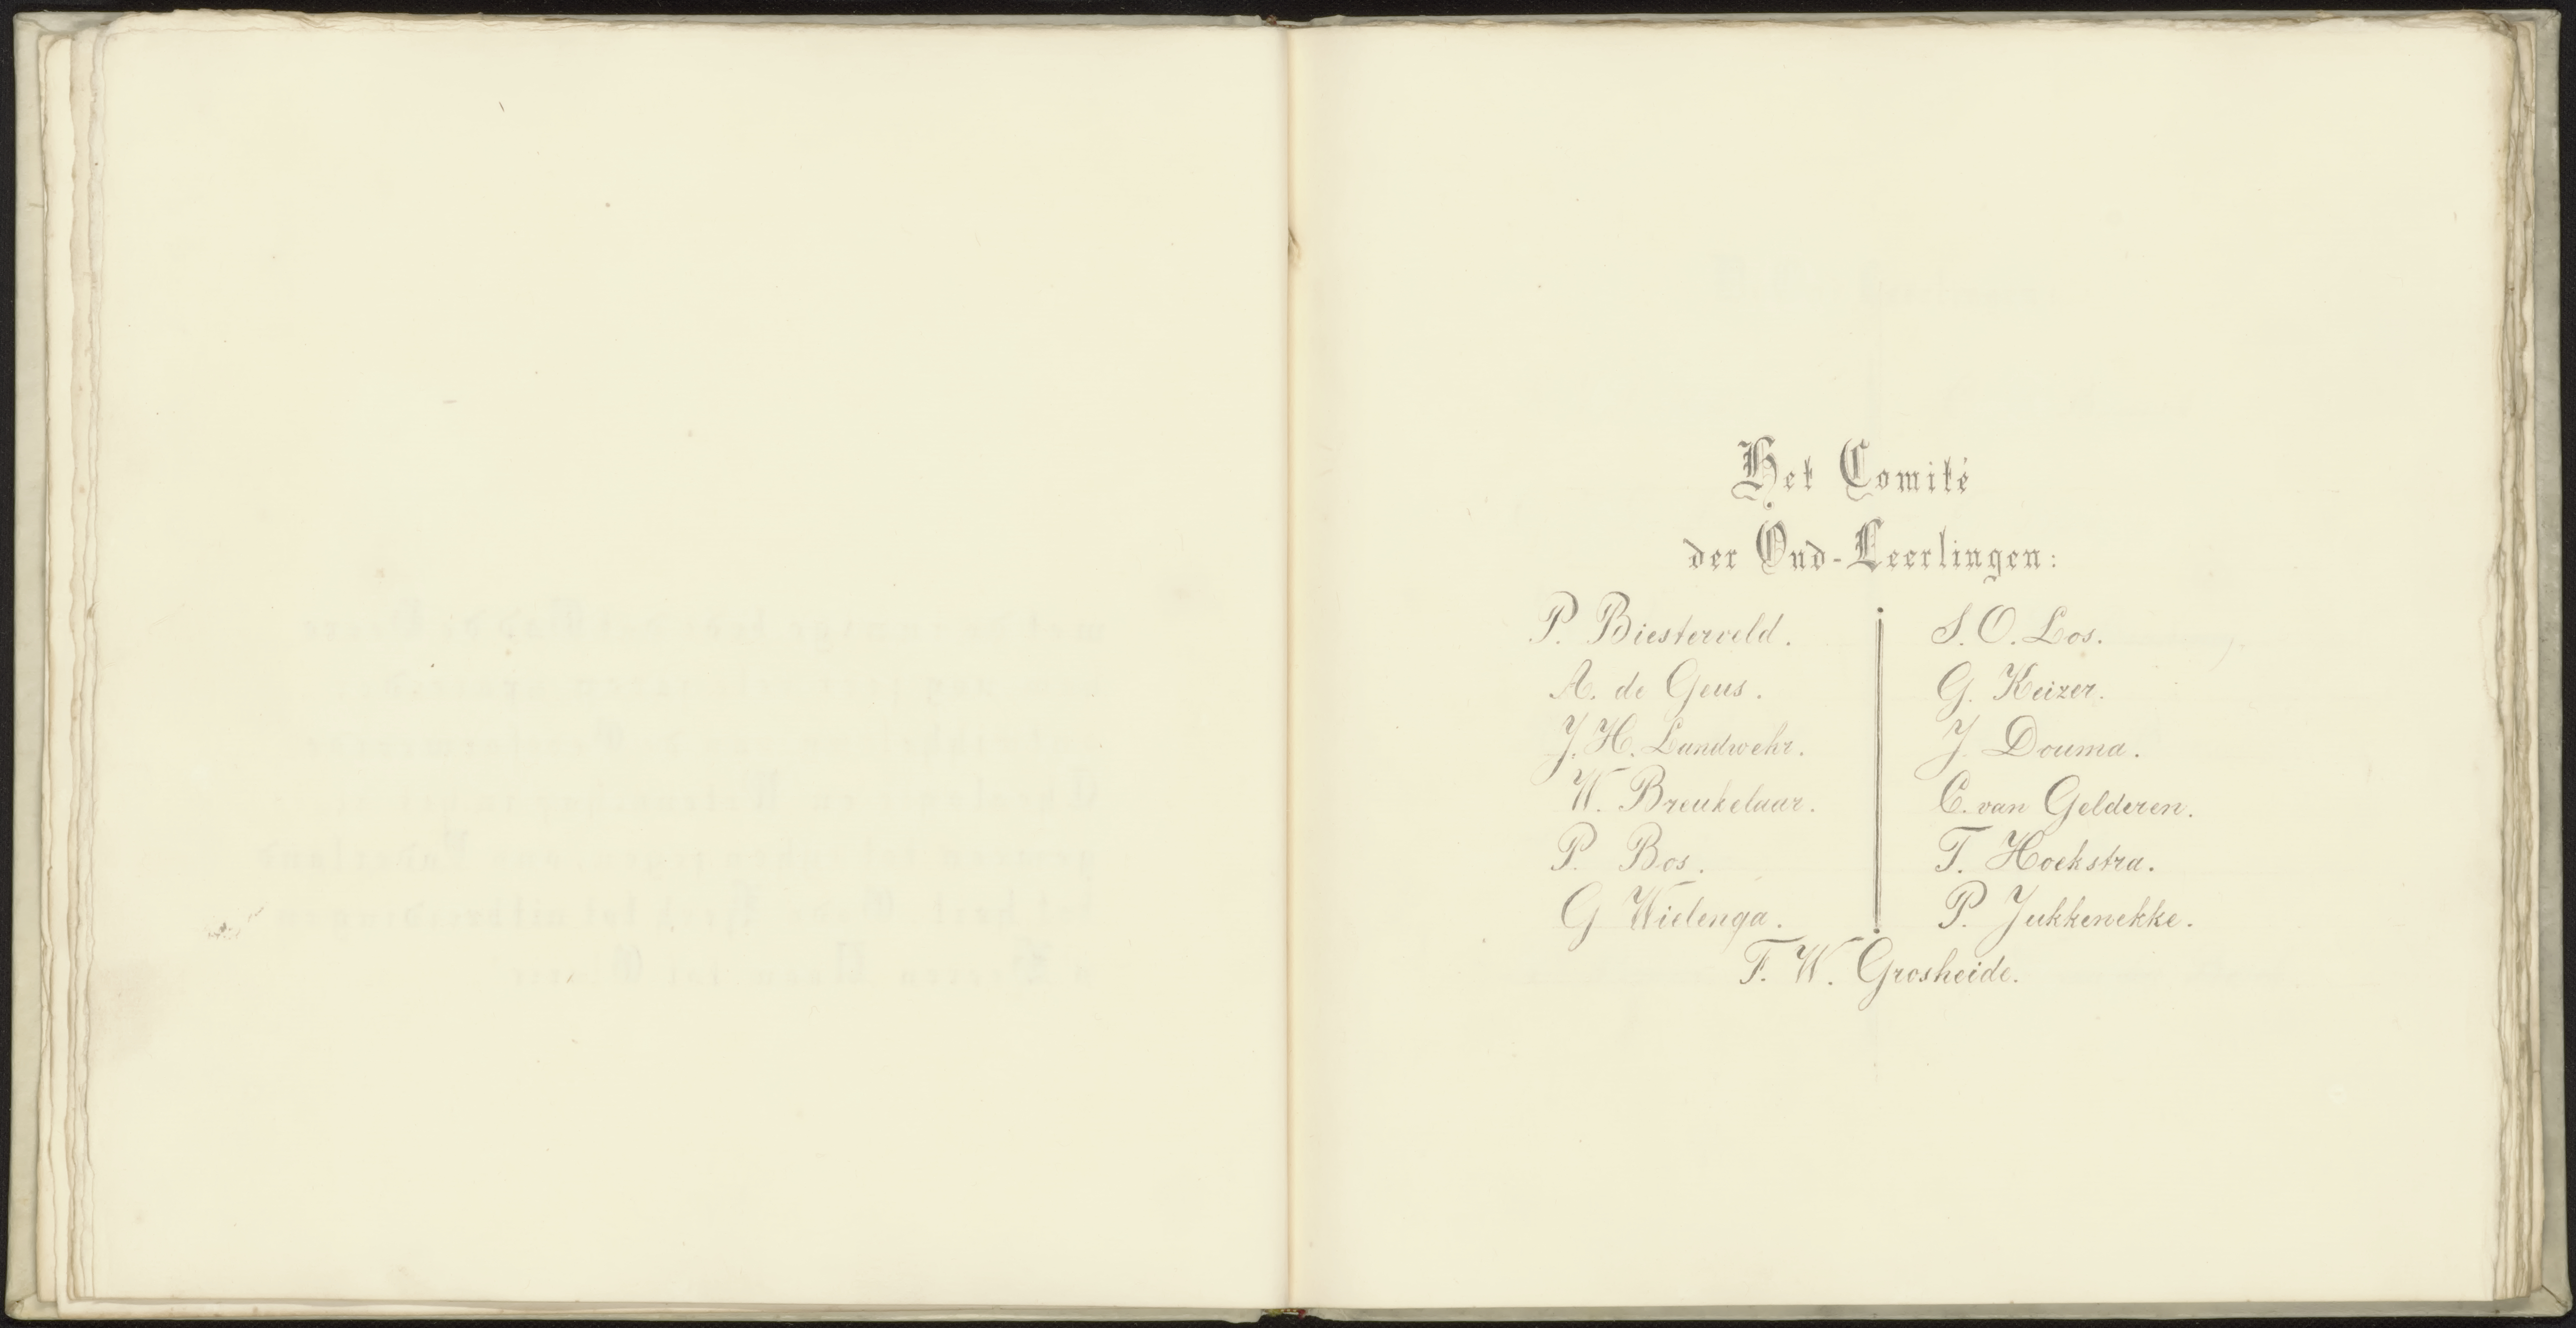 Het Comité
der Oud-Leerlingen:
P. Biesterveld.
A. de Geus.
J. H. Landwehr.
W. Breukelaar.
P. Bos.
G Wielenga.
S. O. Los.
G. Keizer.
J. Douma.
C. van Gelderen.
T. Hoekstra.
P. Jukkenekke.
F. W. Grosheide.